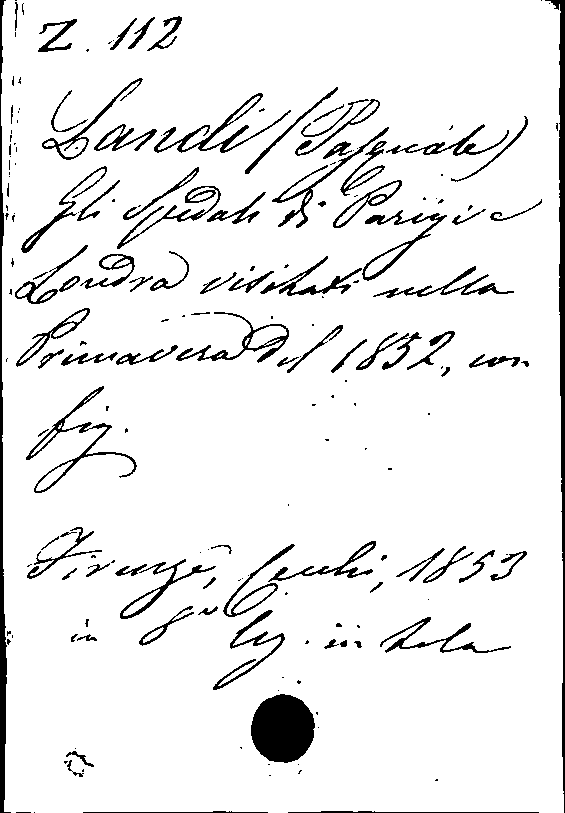 Z. 112
Landi (Pasquale)
Gli Spedali di Parigi e
Londra visitati nella
Primavera del 1852, con
fig.
Firenze, Cecchi, 1853
in 8º leg. in tela